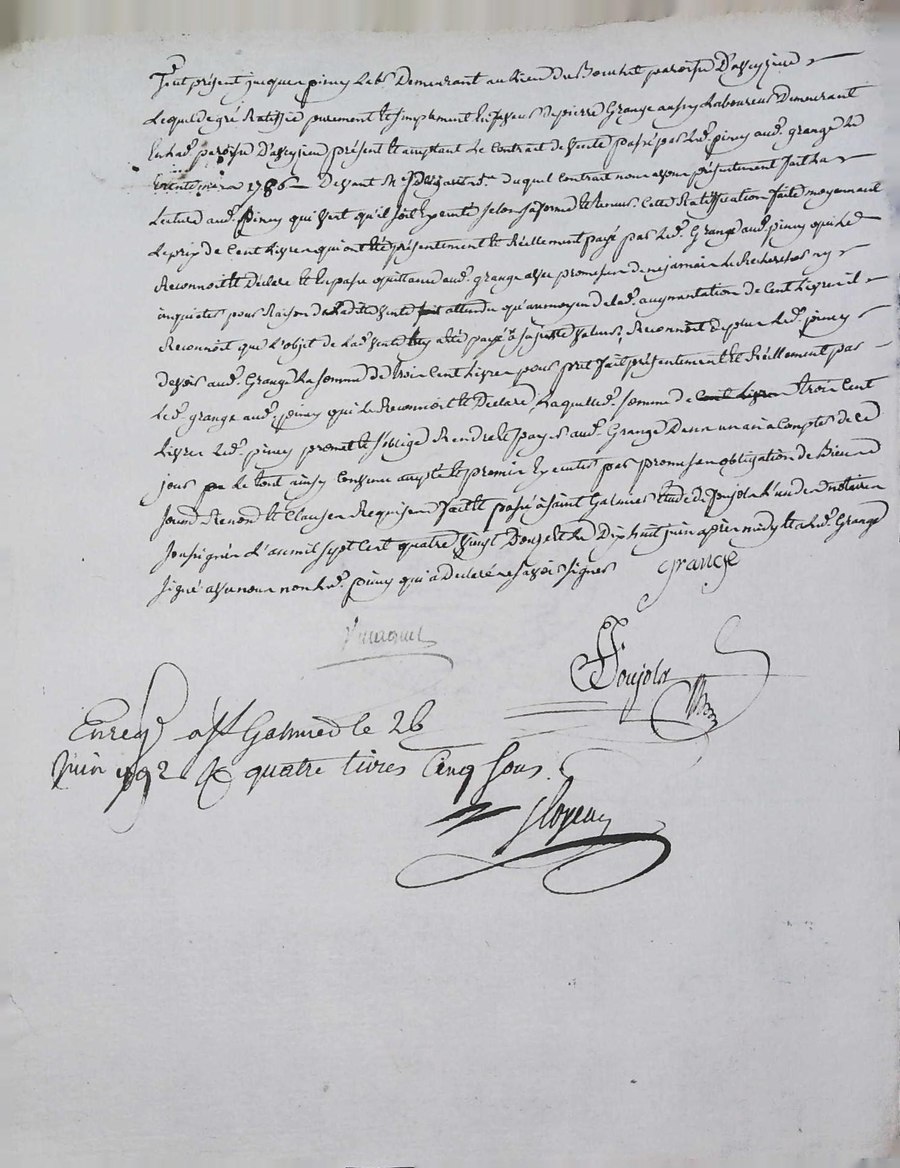 fut présent jacques piney Lab. Demeurant au lieu du Bouchet paroisse D'aveyzieu
Lequel de gré Ratiffie purement et simplement en faveur de pierre Grange aussy Laboureur Demeurant
paroisse D'aveyzieu présent et acceptant Le Contract de vente passé par led. piney aud. grange Le
trente mars 1786 Devant Me duquel Contract nous avons présentement fait La
Lecture aud. piney qui veut qu'il soit Exécuté selon sa forme et teneur Cette Ratiffication faite moyennant
Le prix de Cent Livres qui ont été présentement et Réellement payé par led. Grange aud. piney qui Le
Reconnoit et Déclare et En passe quittance aud. grange avec promesse de ne jamais Le Rechercher ny
inquieter pour Raison de Ladite vente attendu qu'au moyen de lad. augmentation de Cent Livres il
Reconnoit que L'objet de Lad. vente a été payé à sa juste valeur, Reconnoit de plus led. piney
devoir aud. Grange La somme de trois Cent Livres pour prêt fait présentement et Réellement par
Led. grange aud. piney qui Le Reconnoit et Déclare, Laquelle somme de Cent Livres trois Cent
Livres led. piney promet et s'oblige Rendre et payer aud. Grange Dans un an à Compter de ce
jour Le tout ainsy Convenu accepté et promis Exécuter par promesse obligation de Biens
soum. Renon. et Clauses Requises fait et passé à saint Galmier Etude de foujols L'un des notaires
soussignés L'an mil sept Cent quatre vingt Douze et Le Dix huit juin après midy et a led. Grange
signé avec nous non led. piney qui a Déclaré ne savoir signer Grange
foujols
Enreg. à St Galmier le 26
Juin 1792 R quatre livres Cinq sous.